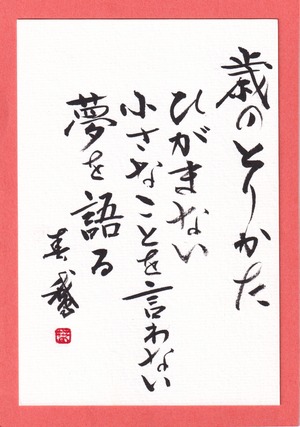 歳のとりかた
ひがまない
小さなことを言わない
夢を語る